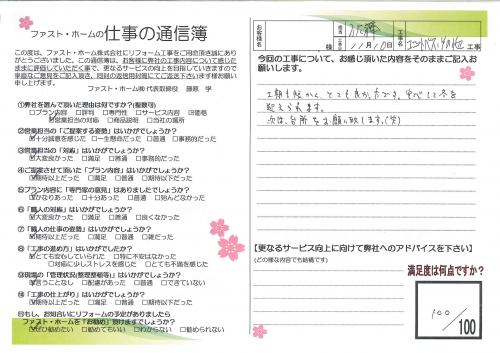 ファスト・ホームの仕事の通信簿
この度は、ファスト・ホーム株式会社にリフォーム工事をご用命頂き誠にあり
がとうございました。この通信簿は、お客様に弊社の工事内容について感じた
ままに評価していただく事で、更なるサービスの向上を目指していますので
率直なご意見をご記入頂き、同封の返信用封筒にてご返送下さいます様お願い
申し上げます。
ファスト・ホーム㈱ 代表取締役 藤原 学
①弊社を選んで頂いた理由は何ですか?(複数可)
□プラン内容 □評判 □専門性 □サービス内容 □価格
□営業担当の対応 □商品説明 □近さの場所
②営業担当の「ご提案する姿勢」はいかがでしょうか?
□十分誠意を感じた □一生懸命だった □普通 □事務的だった
③営業担当の「対応」はいかがでしょうか?
□大変良かった □満足 □普通 □事務的だった
④ご提案させて頂いた「プラン内容」はいかがでしょうか?
□期待以上だった □満足 □普通 □期待以下だった
⑤プラン内容に「専門家の意見」はありましたでしょうか?
□かなりあった □十分あった □普通 □殆んどなかった
⑥「職人の対応」はいかがでしょうか?
□大変良かった □満足 □普通 □良くなかった
⑦「職人の仕事の姿勢」はいかがでしょうか?
□期待以上だった □満足 □普通 □雑だった
⑧「工事の進め方」はいかがでしたか?
□とても安心していられた □特に不安はなかった
□対応に少しストレスを感じた □とても不満を感じた
⑨現場の「管理状況(整理整頓等)」はいかがでしょうか?
□言うことなし □配慮があった □普通 □できていない
⑩「工事の仕上り」はいかがでしょうか?
□期待以上だった □満足 □普通 □期待以下だった
⑪もし、お知合いにリフォームの予定がありましたら
ファスト・ホームを「お勧め」頂けますでしょうか?
□ぜひ勧めたい □勧めてもいい □わからない □勧められない
お客様名 様 担当 工事名 工事
11月10日
今回の工事について、お感じ頂いた内容をそのままご記入お
願いします。
工期も短かく、とても良かったです。安心して冬を
迎えられます。
次は、台所をお願い致します。(笑)
【更なるサービス向上に向けて弊社へのアドバイスを下さい】
(どの様な内容でも結構です)
満足度は何点ですか?
100/100